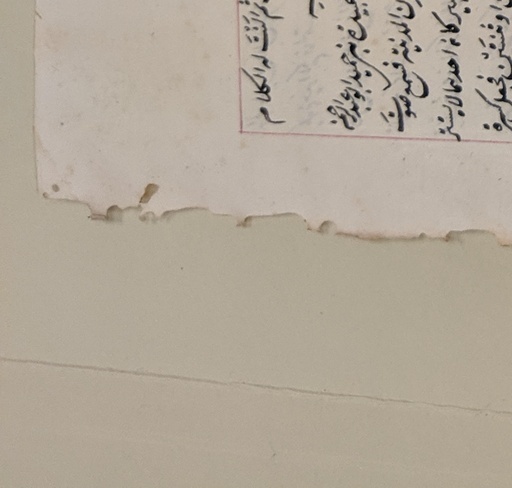 ثم النت له الكلام
عبيدة بن حميد ابو عبد الرحمن
المدينة فسمع صوت
كان احدهما لا يستتر
او ثنتين فجعل كسرة